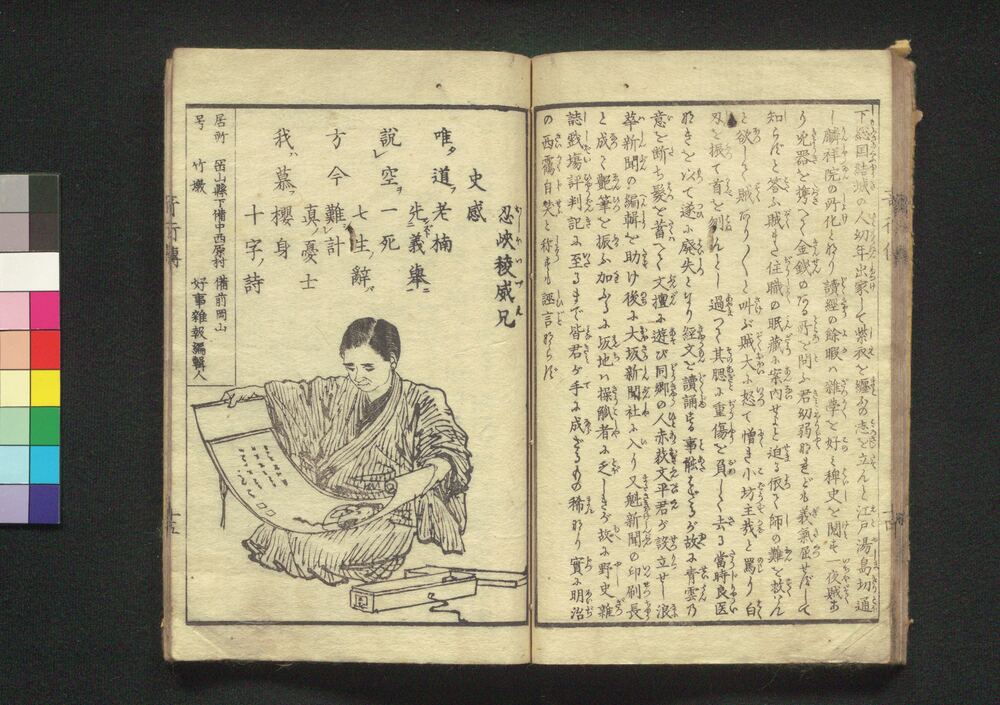 下総国結城の人幼年出家して紫衣を纏ふの志を立んと江戸湯島切通
し麟祥院の所化となり讀經の餘暇ハ雜學を好ミ稗史を閲す一夜賊あ
り兇器を携へて金錢のある所を問ふ君幼弱なれども義氣屈せずして
知らずと答ふ賊また住職の眠藏に案内せよと迫る依て師の難を救ん
と欲して賊あり〳〵と叫ぶ賊大に怒て憎き小坊主哉と罵り白
刄を振て首を刎んとし過つて其腮に重傷を負して去る當時良医
なきを以て遂に廢失となり經文を讀誦する事能はざるが故に青雲乃
意を断ち髪を蓄へて文壇に遊び同郷の人赤荻文平君が設立せし浪
華新聞の編輯を助け後に大坂新聞社に入り又魁新聞の印刷長
と成て艶筆を振ふ加ふるに坂地ハ操觚者に乏しきが故に野史雜
誌戲場評判記に至るまで皆君が手に成ざるもの稀なり實に明治
の西鶴自笑と称するも誣言ならず
忍峽稜威兄
史感
唯道老楠
先義擧
說空一死
七生辭
方今難計
眞憂士
我慕櫻身
十字詩
居所 岡山縣下備中西原村 備前岡山
号 竹𡼞 好事雜報編輯人